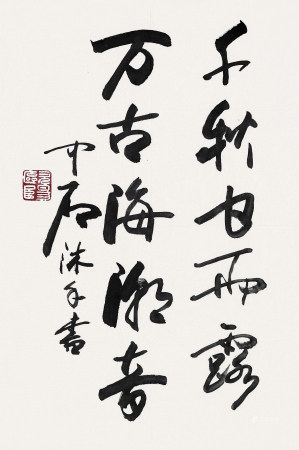 千秋甘雨露
万古海潮音
中石沐手書